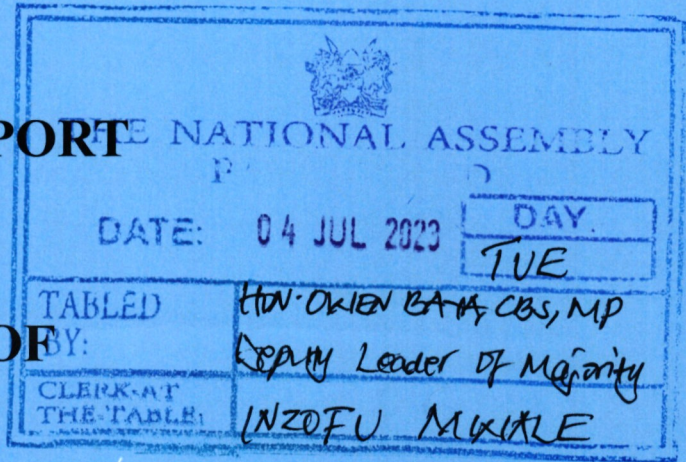 PORT
THE NATIONAL ASSEMBLY
P D
DATE: 04 JUL 2023 DAY.
TUE
TABLED BY: HON. OWEN BAYA, CBS, MP
Deputy Leader of Majority
OF
CLERK-AT THE-TABLE: INZOFU MWALE